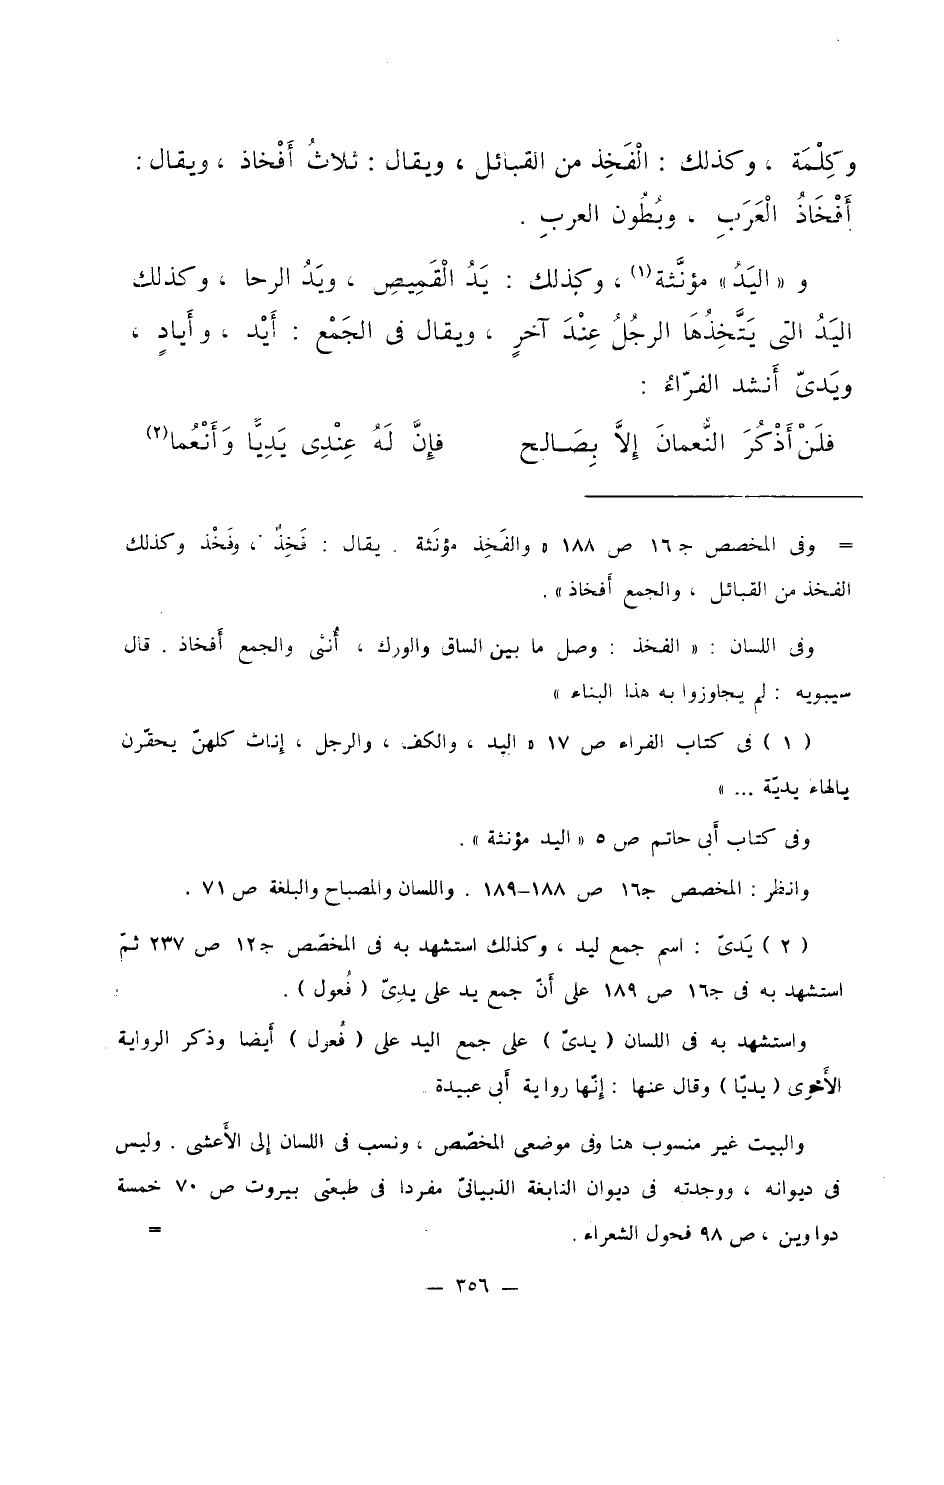 وكِلْمَة ، وكذلك : الْفَخِذ من القبائل ، ويقال : ثلاثُ أَفْخاذ ، ويقال :
أَفْخَاذُ الْعَرَبِ ، وبُطُون العربِ .
و « اليَدُ » مؤنَّثة(١) ، وكذلك : يَدُ الْقَمِيصِ ، ويَدُ الرحا ، وكذلك
اليَدُ التى يَتَّخِذُهَا الرجلُ عِنْدَ آخرٍ ، ويقال فى الجَمْع : أَيْد ، وأَيادٍ ،
ويَدىّ أَنشد الفرّاءُ :
فلَنْ أَذْكُرَ النُّعمانَ إِلاَّ بِصَالح فإِنَّ لَهُ عِنْدِى يَدِيًّا وَأَنْعُما(٢)
= وفى المخصص ج١٦ ص ١٨٨ « والفَخِذ مؤنَثة . يقال : فَخِذٌ ، وفَخْذ وكذلك
الفخذ من القبائل ، والجمع أَفخاذ » .
وفى اللسان : « الفخذ : وصل ما بين الساق والورك ، أُنثى والجمع أَفخاذ . قال
سيبويه : لم يجاوزوا به هذا البناء »
( ١ ) فى كتاب الفراء ص ١٧ « اليد ، والكف ، والرجل ، إناث كلهنّ يحقّرن
بالهاء يديّة ... »
وفى كتاب أَبى حاتم ص ٥ « اليد مؤنثة » .
وانظر : المخصص ج١٦ ص ١٨٨-١٨٩ . واللسان والمصباح والبلغة ص ٧١ .
( ٢ ) يَدىّ : اسم جمع ليد ، وكذلك استشهد به فى المخصّص ج١٢ ص ٢٣٧ ثمّ
استشهد به فى ج١٦ ص ١٨٩ على أَنّ جمع يد على يدِىّ ( فُعول ) .
واستشهد به فى اللسان ( يدىّ ) على جمع اليد على ( فُعول ) أَيضا وذكر الرواية
الأَخرى ( يديّا ) وقال عنها : إِنّها رواية أَبى عبيدة
والبيت غير منسوب هنا وفى موضعى المخصّص ، ونسب فى اللسان إِلى الأَعشى . وليس
فى ديوانه ، ووجدته فى ديوان النابغة الذبيانىّ مفردا فى طبعتى بيروت ص ٧٠ خمسة
دواوين ، ص ٩٨ فحول الشعراء . =
— ٣٥٦ —